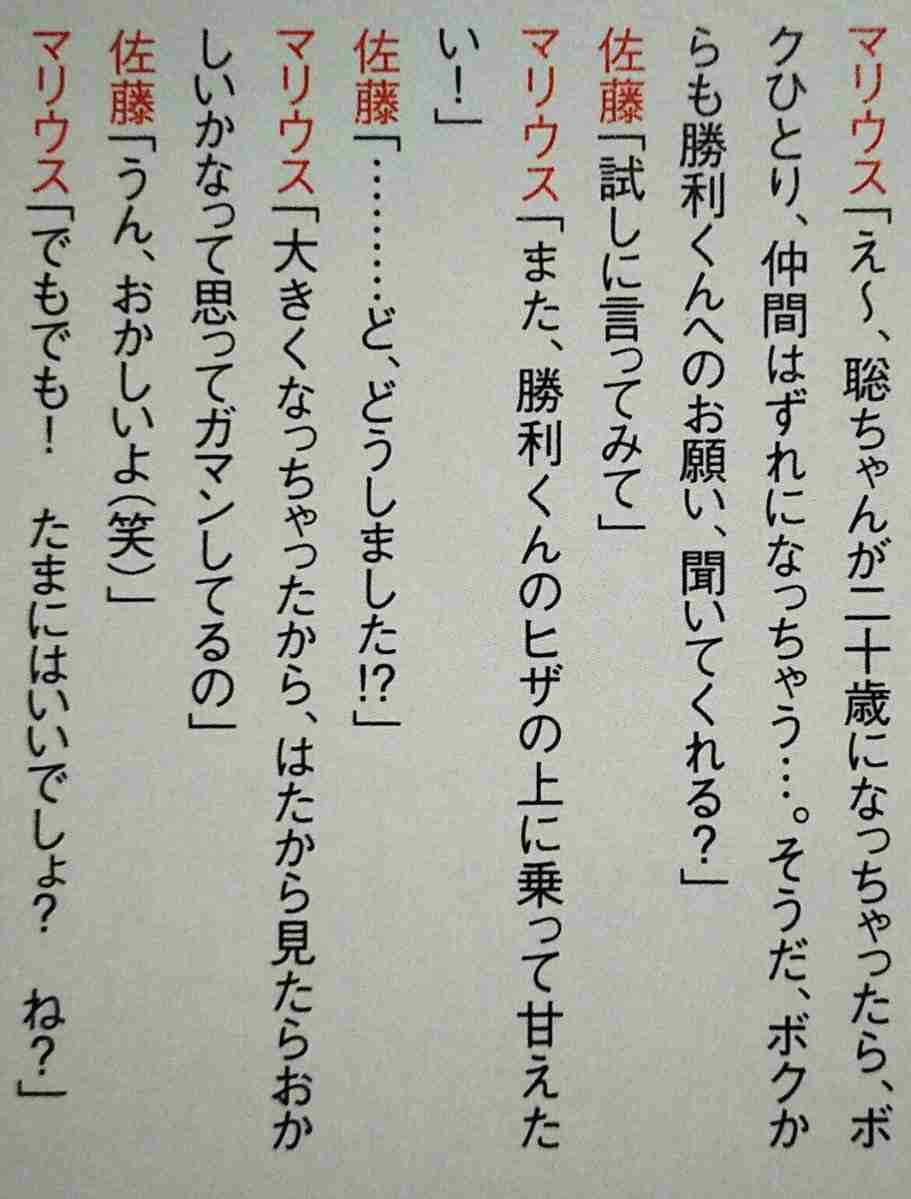 マリウス「え〜、聡ちゃんが二十歳になっちゃったら、ボ
クひとり、仲間はずれになっちゃう…。そうだ、ボクか
らも勝利くんへのお願い、聞いてくれる?」
佐藤「試しに言ってみて」
マリウス「また、勝利くんのヒザの上に乗って甘えた
い!」
佐藤「………ど、どうしました!?」
マリウス「大きくなっちゃったから、はたから見たらおか
しいかなって思ってガマンしてるの」
佐藤「うん、おかしいよ(笑)」
マリウス「でもでも! たまにはいいでしょ? ね?」